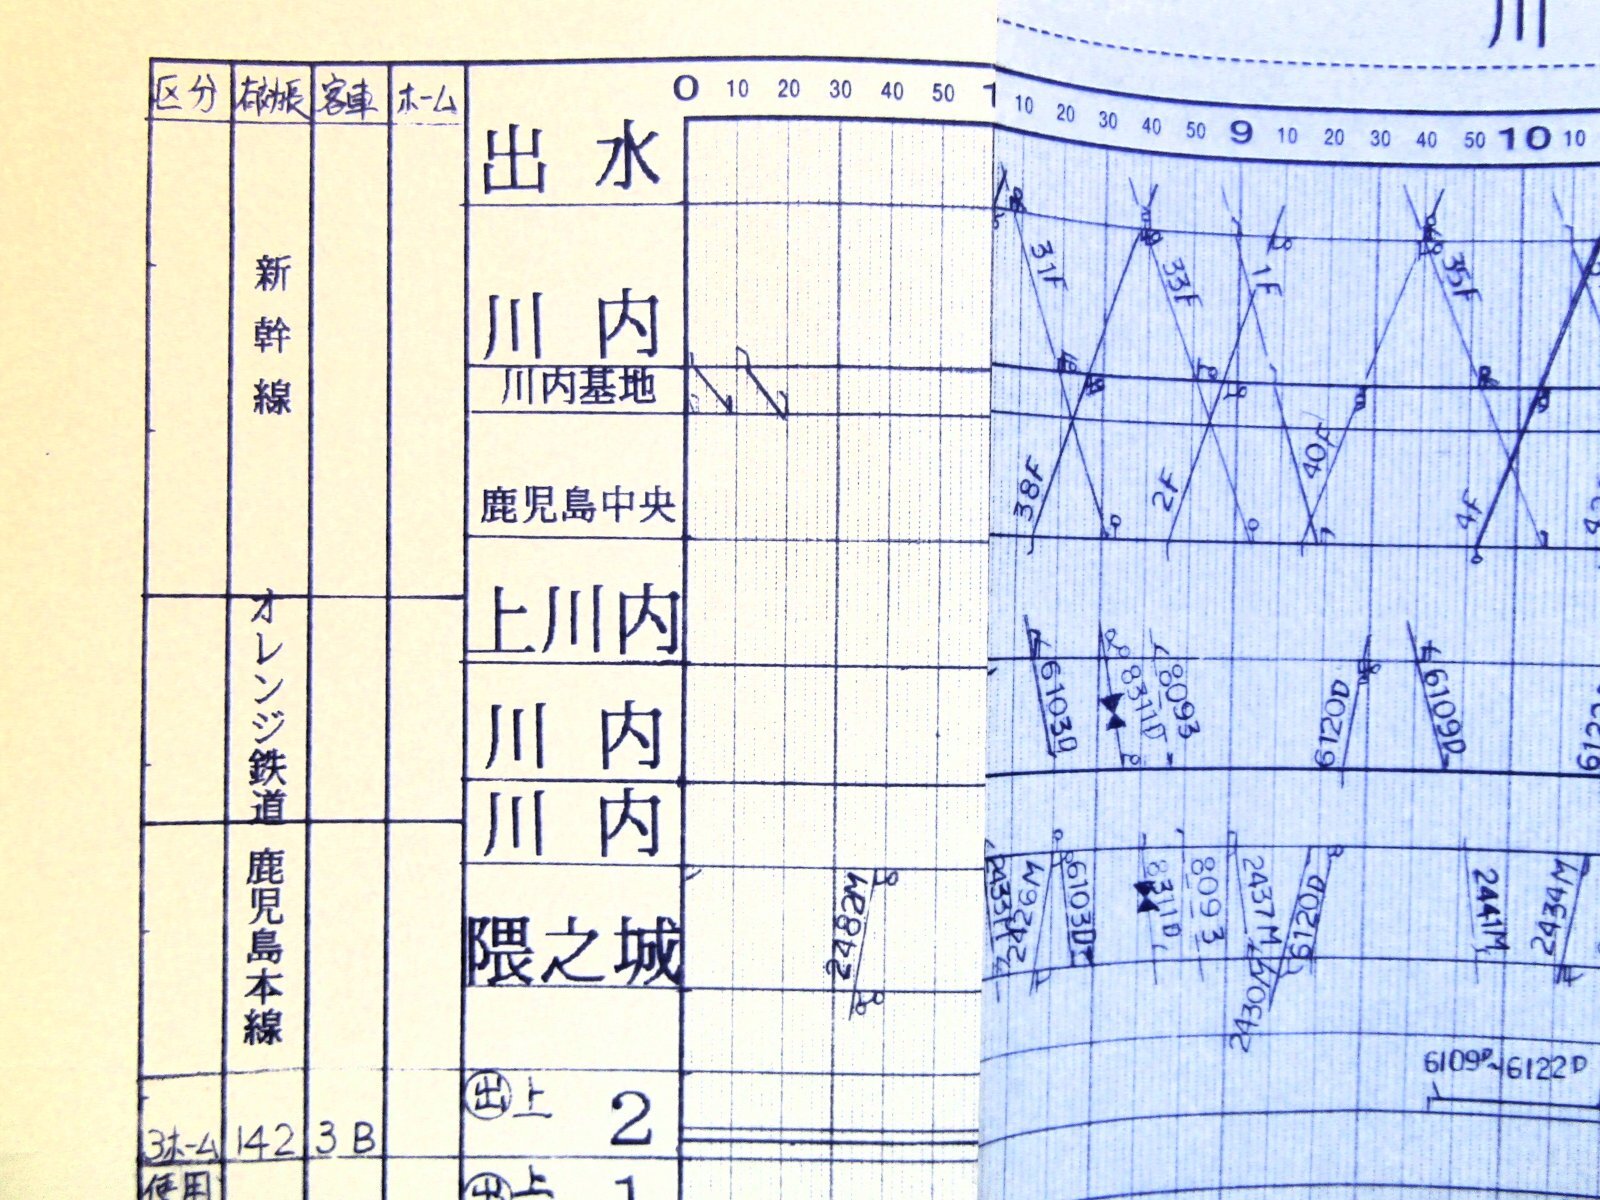 川
区分 有効長 客車 ホーム
0 10 20 30 40 50 1
10 20 30 40 50 9 10 20 30 40 50 10 10
出水
新幹線
川内
川内基地
鹿児島中央
31F 33F 1F 35F
38F 2F 40F 4F
オレンジ鉄道
上川内
川内
6103D 8311D 8093 6120D 6109D
鹿児島本線
川内
隈之城
2482M
2433M 2426M 6103D 8311D 8093 2437M 6120D 2441M 2434M
2430M
6109D~6122D
出 上 2
3ホーム 142 3B
使用
出 上 1